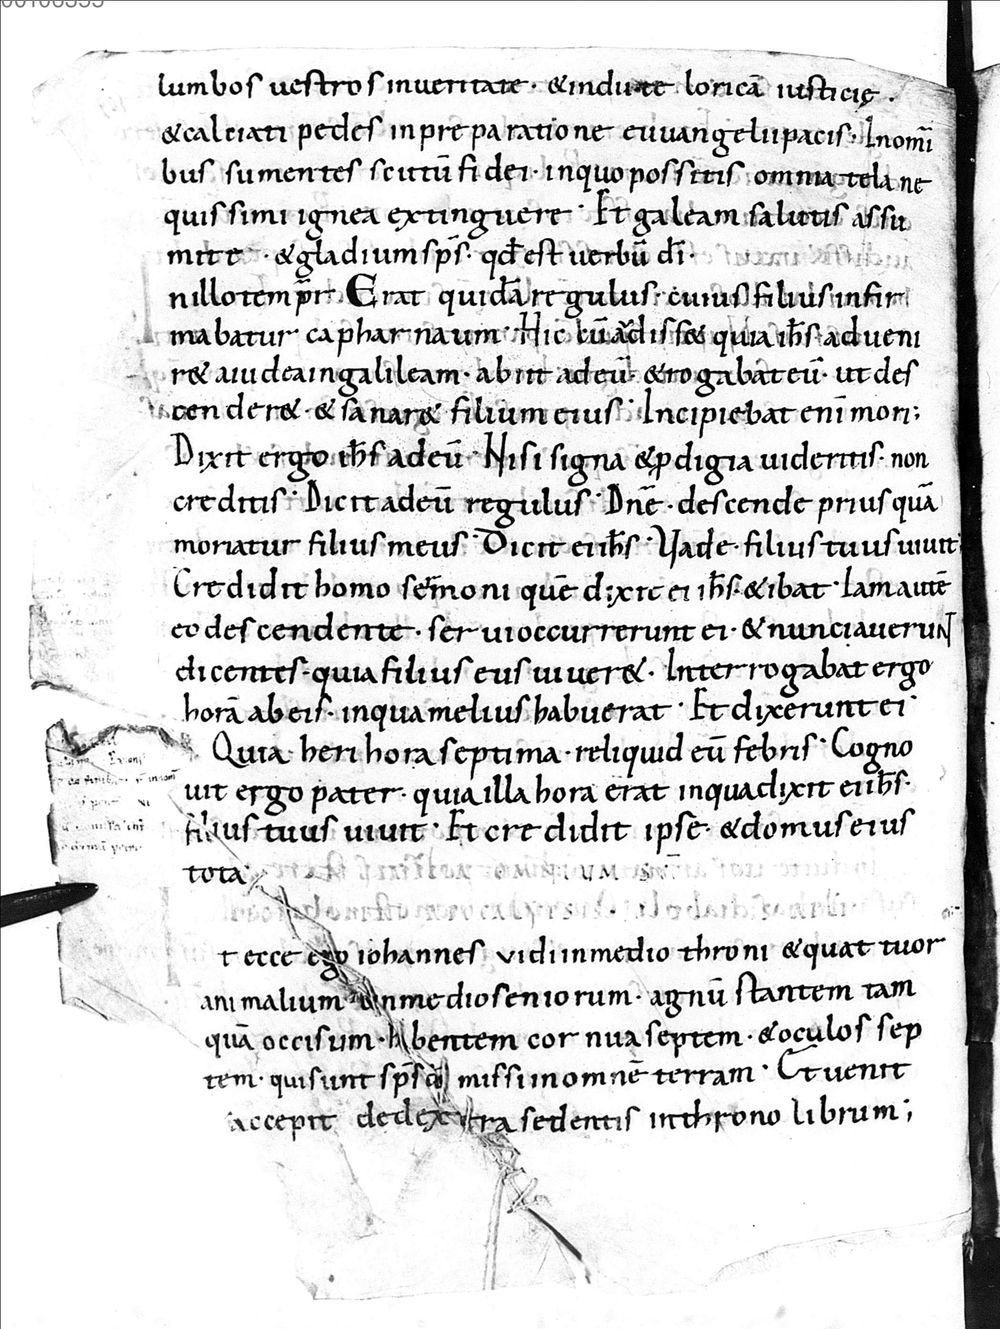 lumbos uestros inueritate · &indute loricā iusticię ·
&calciati pedes inpreparatione euuangelii pacis · Inomī
bus sumentes scutū fidei · inquo possitis omnia tela ne
quissimi ignea extinguere · Et galeam salutis assu
mite · &gladium sp̄s · qđ est uerbū dī ·
nillotemp̄r Erat quidā regulus · cuius filius infir
mabatur capharnaum · Hic cū audiss& quia ih̄s adueni
r& aiudea ingalileam · abiit adeū · &rogabat eū · ut des
cender& · &sanar& filium eius · Incipiebat enī mori ;
Dixit ergo ih̄s adeū · Nisi signa &p̱digia uideritis · non
creditis · Dicit adeū regulus · Dn̄e · descende prius quā
moriatur filius meus · Dicit ei ih̄s · Uade · filius tuus uiuit
Credidit homo sermoni quē dixit ei ih̄s · &ibat · Iam autē
eo descendente · serui occurrerunt ei · &nunciauerunt
dicentes · quia filius eius uiuer& · Interrogabat ergo
horā abeis · inqua melius habuerat · Et dixerunt ei
Quia heri hora septima · reliquid eū febris · Cogno
uit ergo pater · quia illa hora erat inqua dixit ei ih̄s ·
filius tuus uiuit · Et credidit ipse · &domus eius
tota OMNIUM
t ecce ego iohannes vidi inmedio throni &quattuor
animalium &inmedio seniorum · agnū stantem tam
quā occisum · habentem cornua septem · &oculos sep
tem · qui sunt sp̄s missi inomnē terram · Et uenit
accepit dedextra sedentis inthrono librum ;